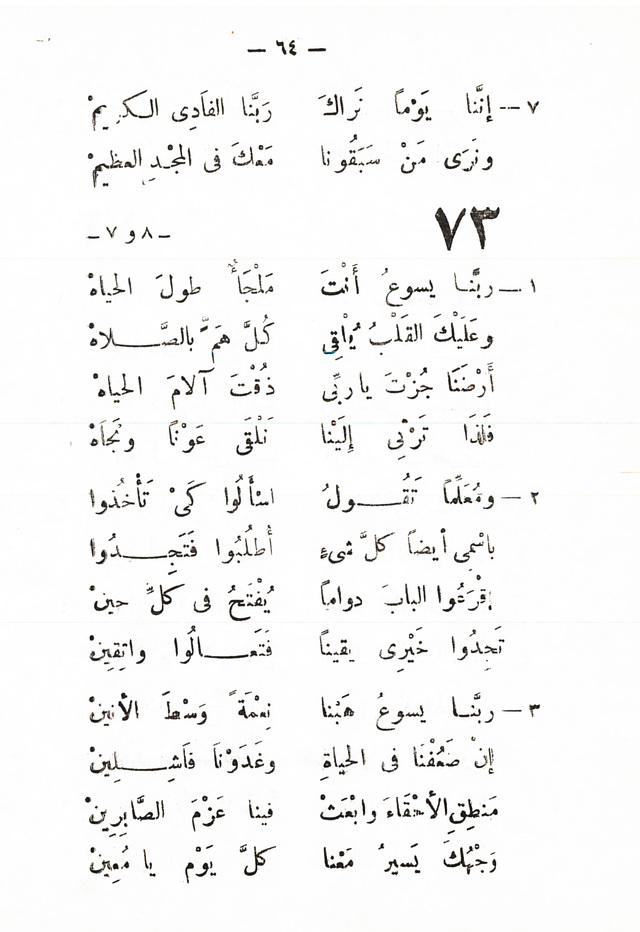 — ٦٤ —
٧ — إنَّنا يَوْماً نَراكَ رَبَّنا الفَادِى الكريمْ
ونَرَى مَنْ سَبَقُونا مَعْكَ فى المجْدِ العظيمْ
٧٣ – ٨ و ٧ –
١ — ربَّنا يسوعُ أَنْتَ مَلْجَأٌ طولَ الحياهْ
وعَلَيْكَ القَلْبُ يُلْقِى كُلَّ هَمٍّ بالصَّلاهْ
أَرْضَنَا جُزْتَ ياربِّى ذُقْتَ آلامَ الحياهْ
فَلِذَا تَرْثى إلَيْنا نَلْقَى عَوْنًا ونَجَاهْ
٢ — ومُعَلِّماً تَقُولُ اسْأَلُوا كَىْ تَأْخُذوا
باسْمى أيضاً كلَّ شىءٍ أُطلُبُوا فَتَجِدُوا
إقْرَعُوا البابَ دواماً يُفْتَحُ فى كلِّ حينْ
تَجِدُوا خَيْرِى يقيناً فَتَعَالُوا واثِقِينْ
٣ — ربَّنا يسوعُ هَبْنا نِعْمَةً وَسْطَ الأنينْ
إنْ ضَعُفْنَا فى الحياةِ وغَدَوْنَا فَاشِلِينْ
مَنطِقِ الأحْقَاءَ وابْعَثْ فينا عَزْمَ الصَّابِرِينْ
وَجْهُكَ يَسيرُ مَعْنا كلَّ يَوْمٍ يا مُعِينْ